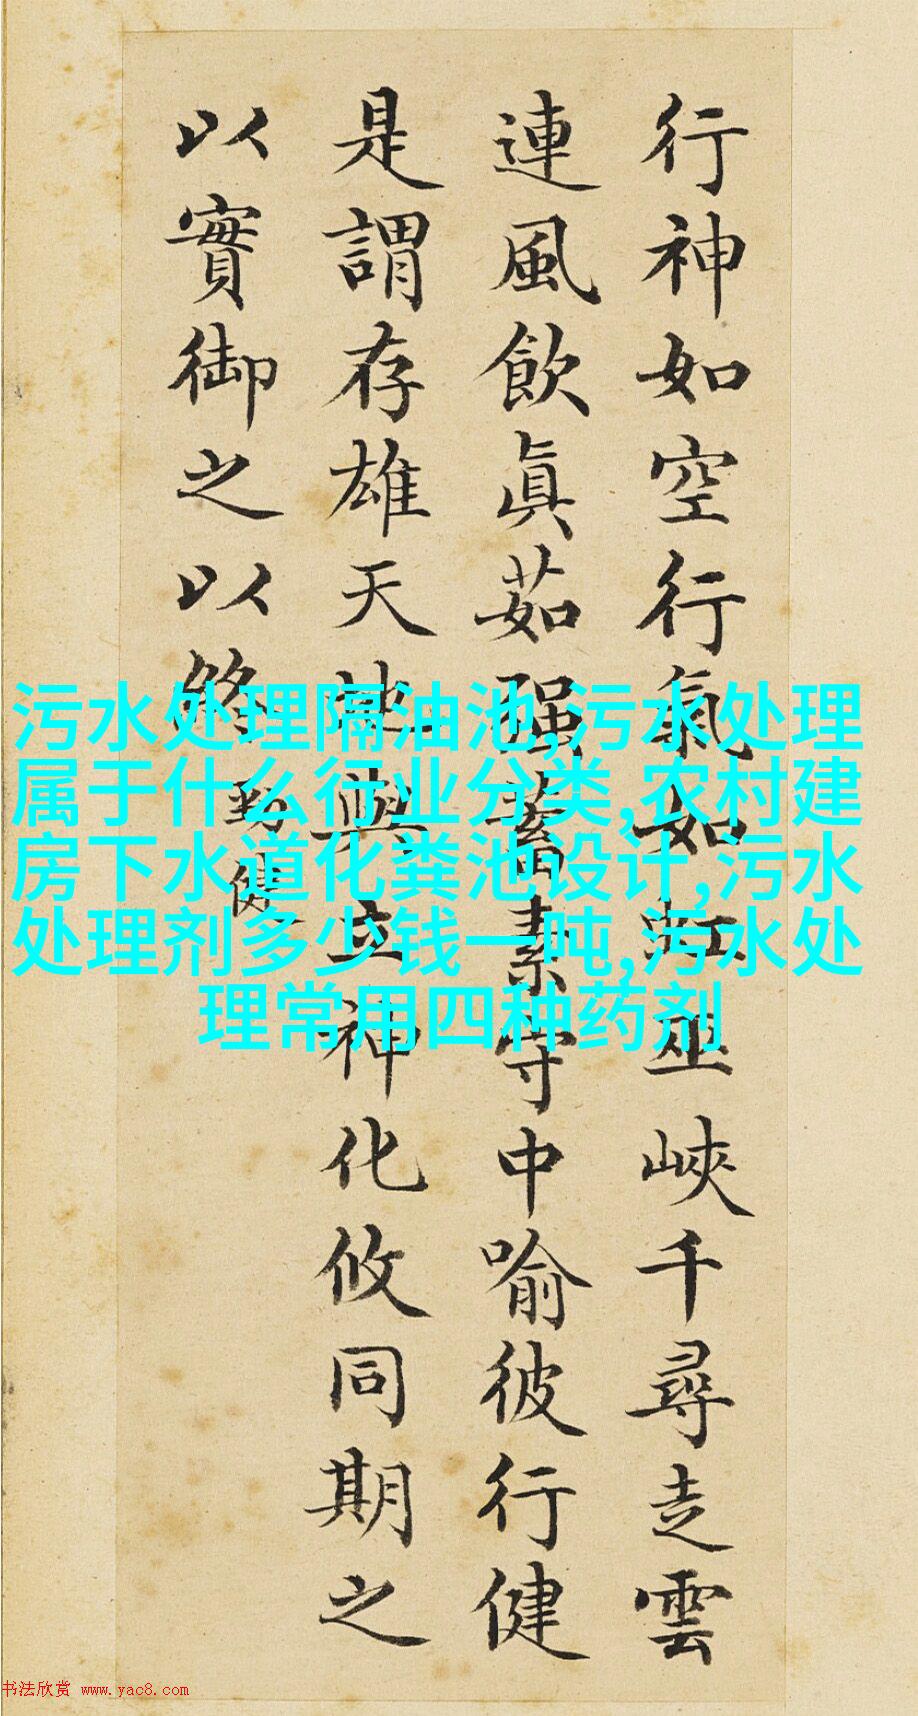 行神如空行氣如虹巫峽千尋走雲
連風飲眞茹强蓄素守中喻彼行健
是謂存雄天地與立神化攸同期之
以實御之以終 勁健
污水处理隔油池,污水处理
属于什么行业分类,农村建
房下水道化粪池设计,污水
处理剂多少钱一吨,污水处
理常用四种药剂
书法欣赏 www.yac8.com